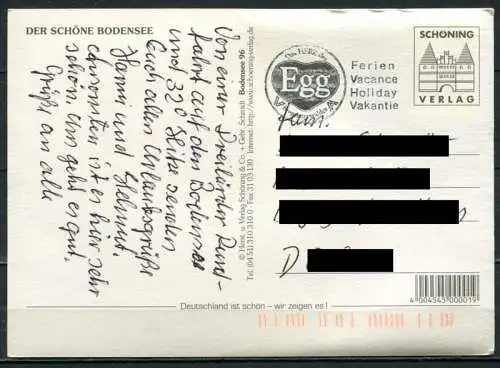 DER SCHÖNE BODENSEE
Von einer Dreiländer Rund-
fahrt auf dem Bodensee
und 32° Hitze senden
Euch allen Urlaubsgrüße
Hanni und Helmut.
Ansonsten ist es hier sehr
schön. Uns geht es gut.
Grüße an alle
© Herst. u. Verlag Schöning & Co. + Gebr. Schmidt Bodensee 96
Tel. (04 51) 310 310 0 · Fax 31 03 130 Internet: http://www.schoening-verlag.de
Das Herz
Egg
Ferien
Vacance
Holiday
Vakantie
SCHÖNING
VERLAG
Fam.
D
Deutschland ist schön – wir zeigen es!
4 004545 000019